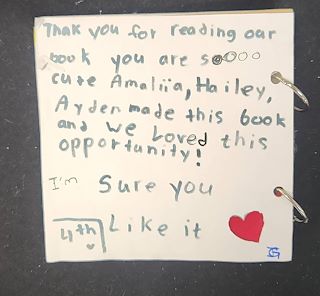 Thak you for reading our
book you are soooo
cute Amaliia, Hailey,
Ayden made this book
and we Loved this
opportunity!
I'm Sure you
4th Like it